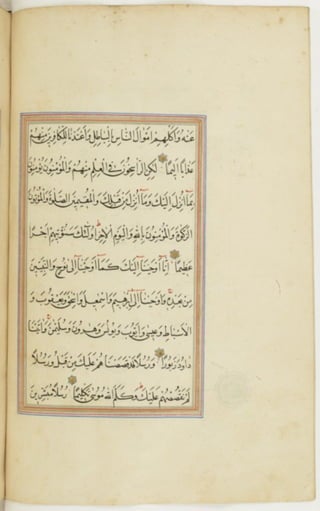 عنه واكلهم اموال الناس بالباطل واعتدنا للكافرين منهم
عذابا اليما لكن الراسخون في العلم منهم والمؤمنون يؤمنون
بما انزل اليك وما انزل من قبلك والمقيمين الصلوة والمؤتون
الزكوة والمؤمنون بالله واليوم الاخر اولئك سنؤتيهم اجرا
عظيما انا اوحينا اليك كما اوحينا الى نوح والنبيين
من بعده واوحينا الى ابرهيم واسمعيل واسحق ويعقوب و
الاسباط وعيسى وايوب ويونس وهرون وسليمن واتينا
داود زبورا ورسلا قد قصصناهم عليك من قبل ورسلا
لم نقصصهم عليك وكلم الله موسى تكليما رسلا مبشرين